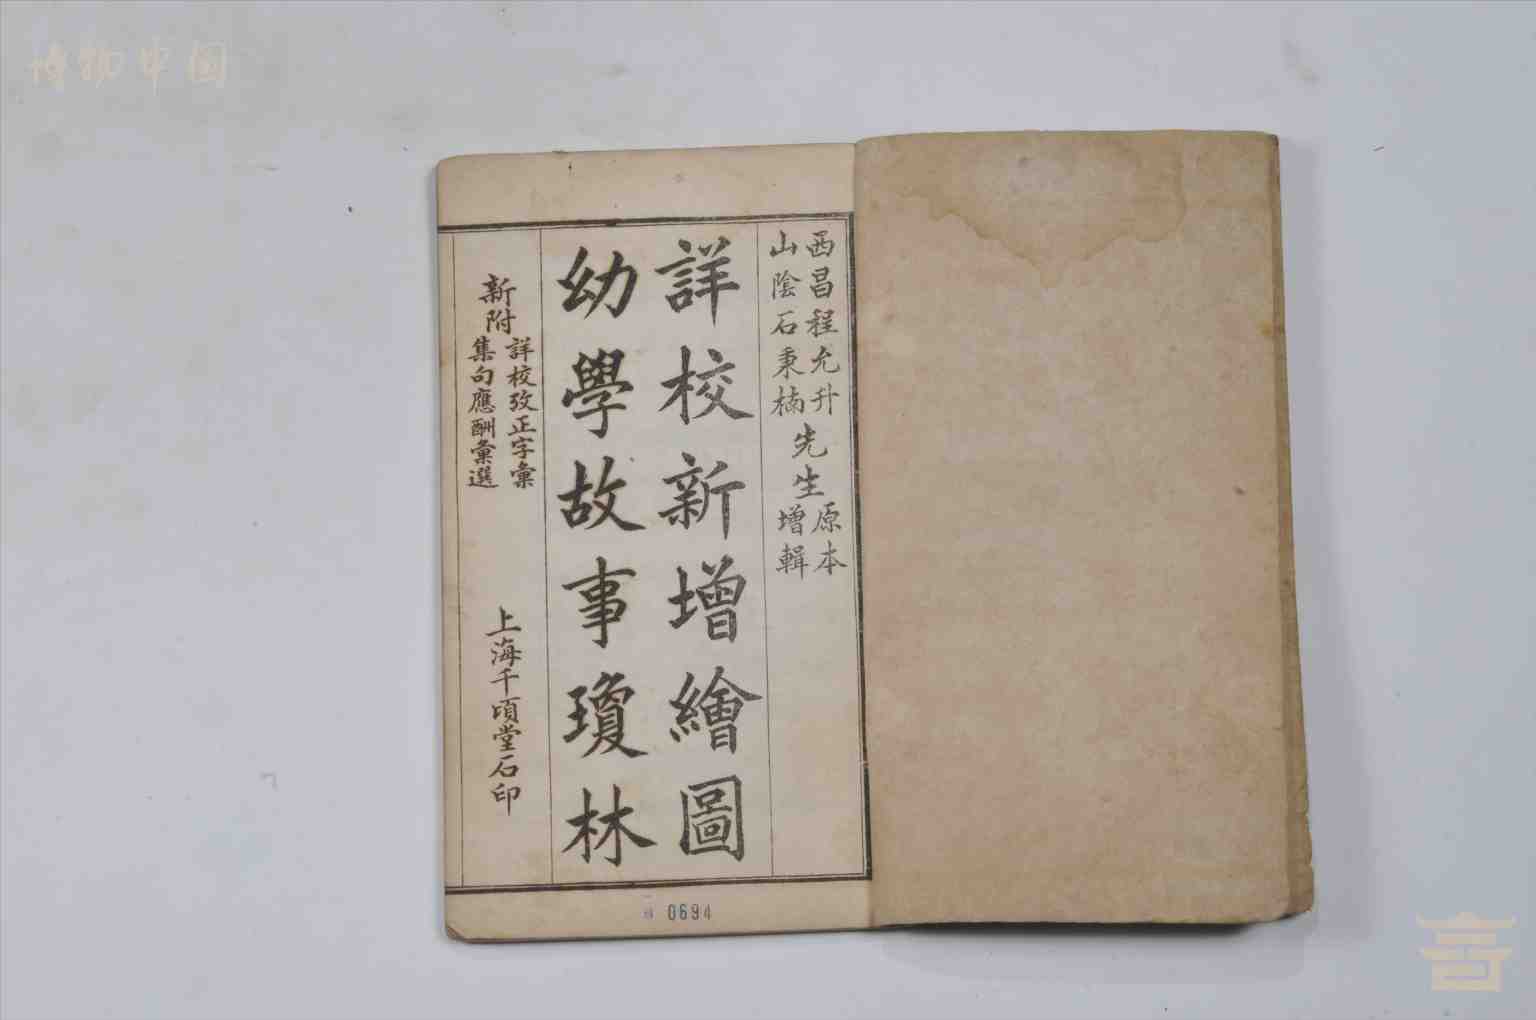 博物中國
西昌程允升
山陰石秉楠
先生
原本
增輯
詳校新增繪圖
幼學故事瓊林
新附
詳校攷正字彙
集句應酬彙選
上海千頃堂石印
0694